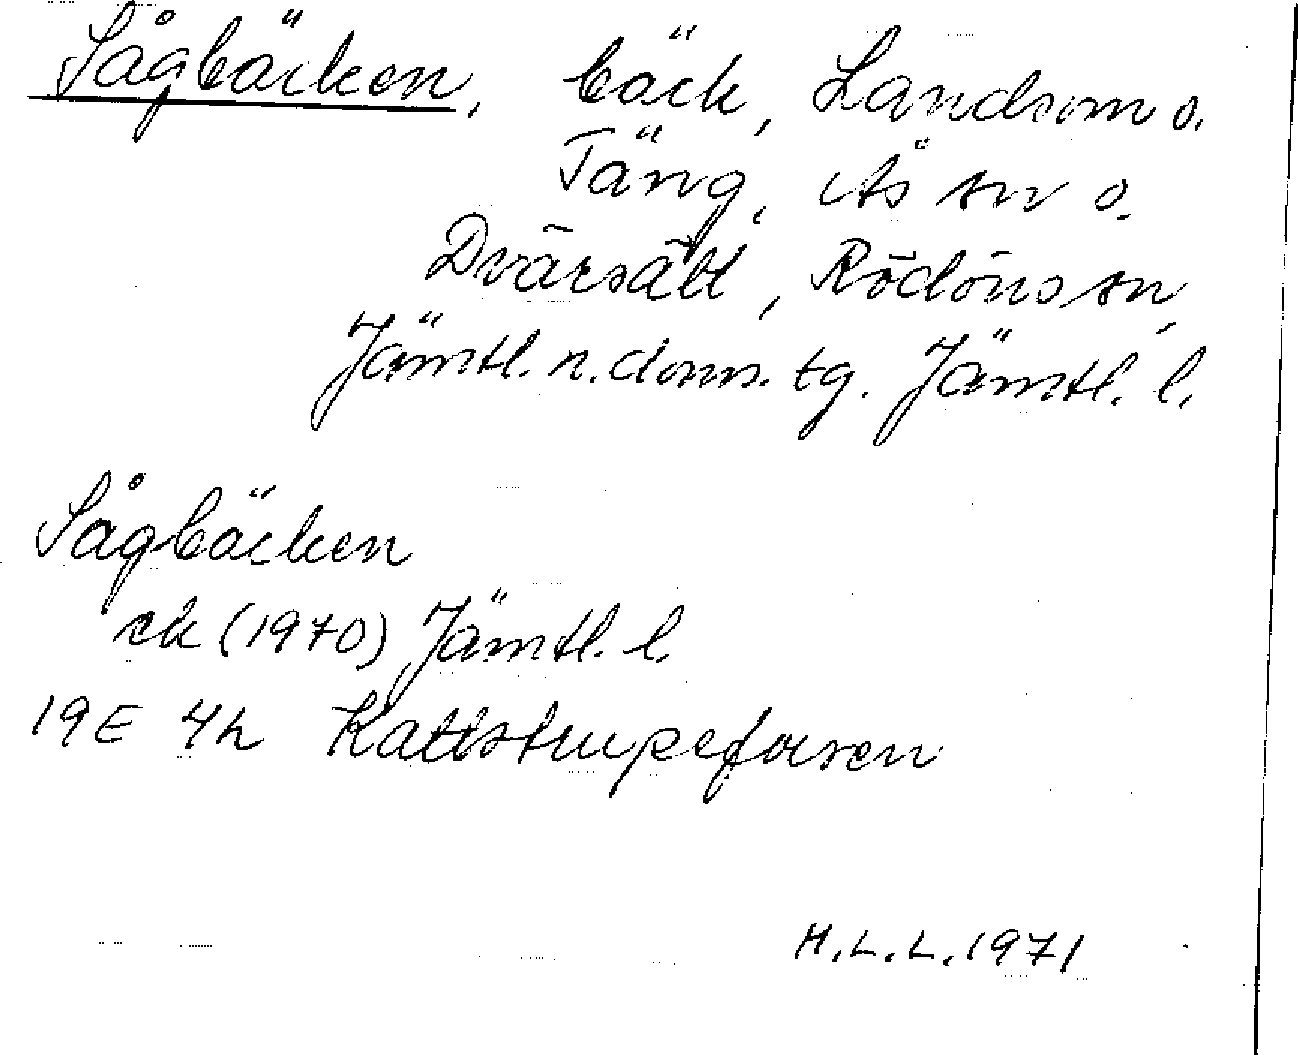 Sågbäcken, bäck, Landsom o.
Täng, Ås sn o.
Dvärsätt, Rödöns sn,
Jämtl. n. doms. tg. Jämtl. l.
Sågbäcken
ek (1970) Jämtl. l.
19E 4h Kattstrupeforsen
H.L.L. 1971